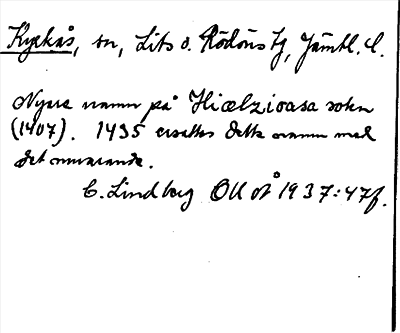 Kyrkås, sn, Lits o. Rödöns tg, Jämtl. l.
Nyare namn på Hiælzioasa sokn
(1407). 1435 ersattes detta namn med
det nuvarande.
C. Lindberg OUÅ 1937:47f.